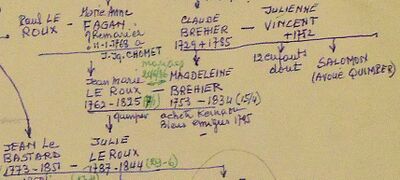 Paul LE
ROUX
Marie Anne
FAGAN
Remariée
11-1-1768 à
J. Jq. CHOMET
CLAUDE
BREHIER
1729 + 1785
JULIENNE
VINCENT
+ 1782
12 enfants
dont
SALOMON
(AVOUÉ QUIMPER)
Jean Marie
LE ROUX
1762 - 1825
mariage
MAGDELEINE
BREHIER
1753 - 1834 (15/4)
quimper
achète
Biens émigrés 1795
JEAN LE
BASTARD
1773 - 1851
JULIE
LE ROUX
1787 - 1844 (29-6)